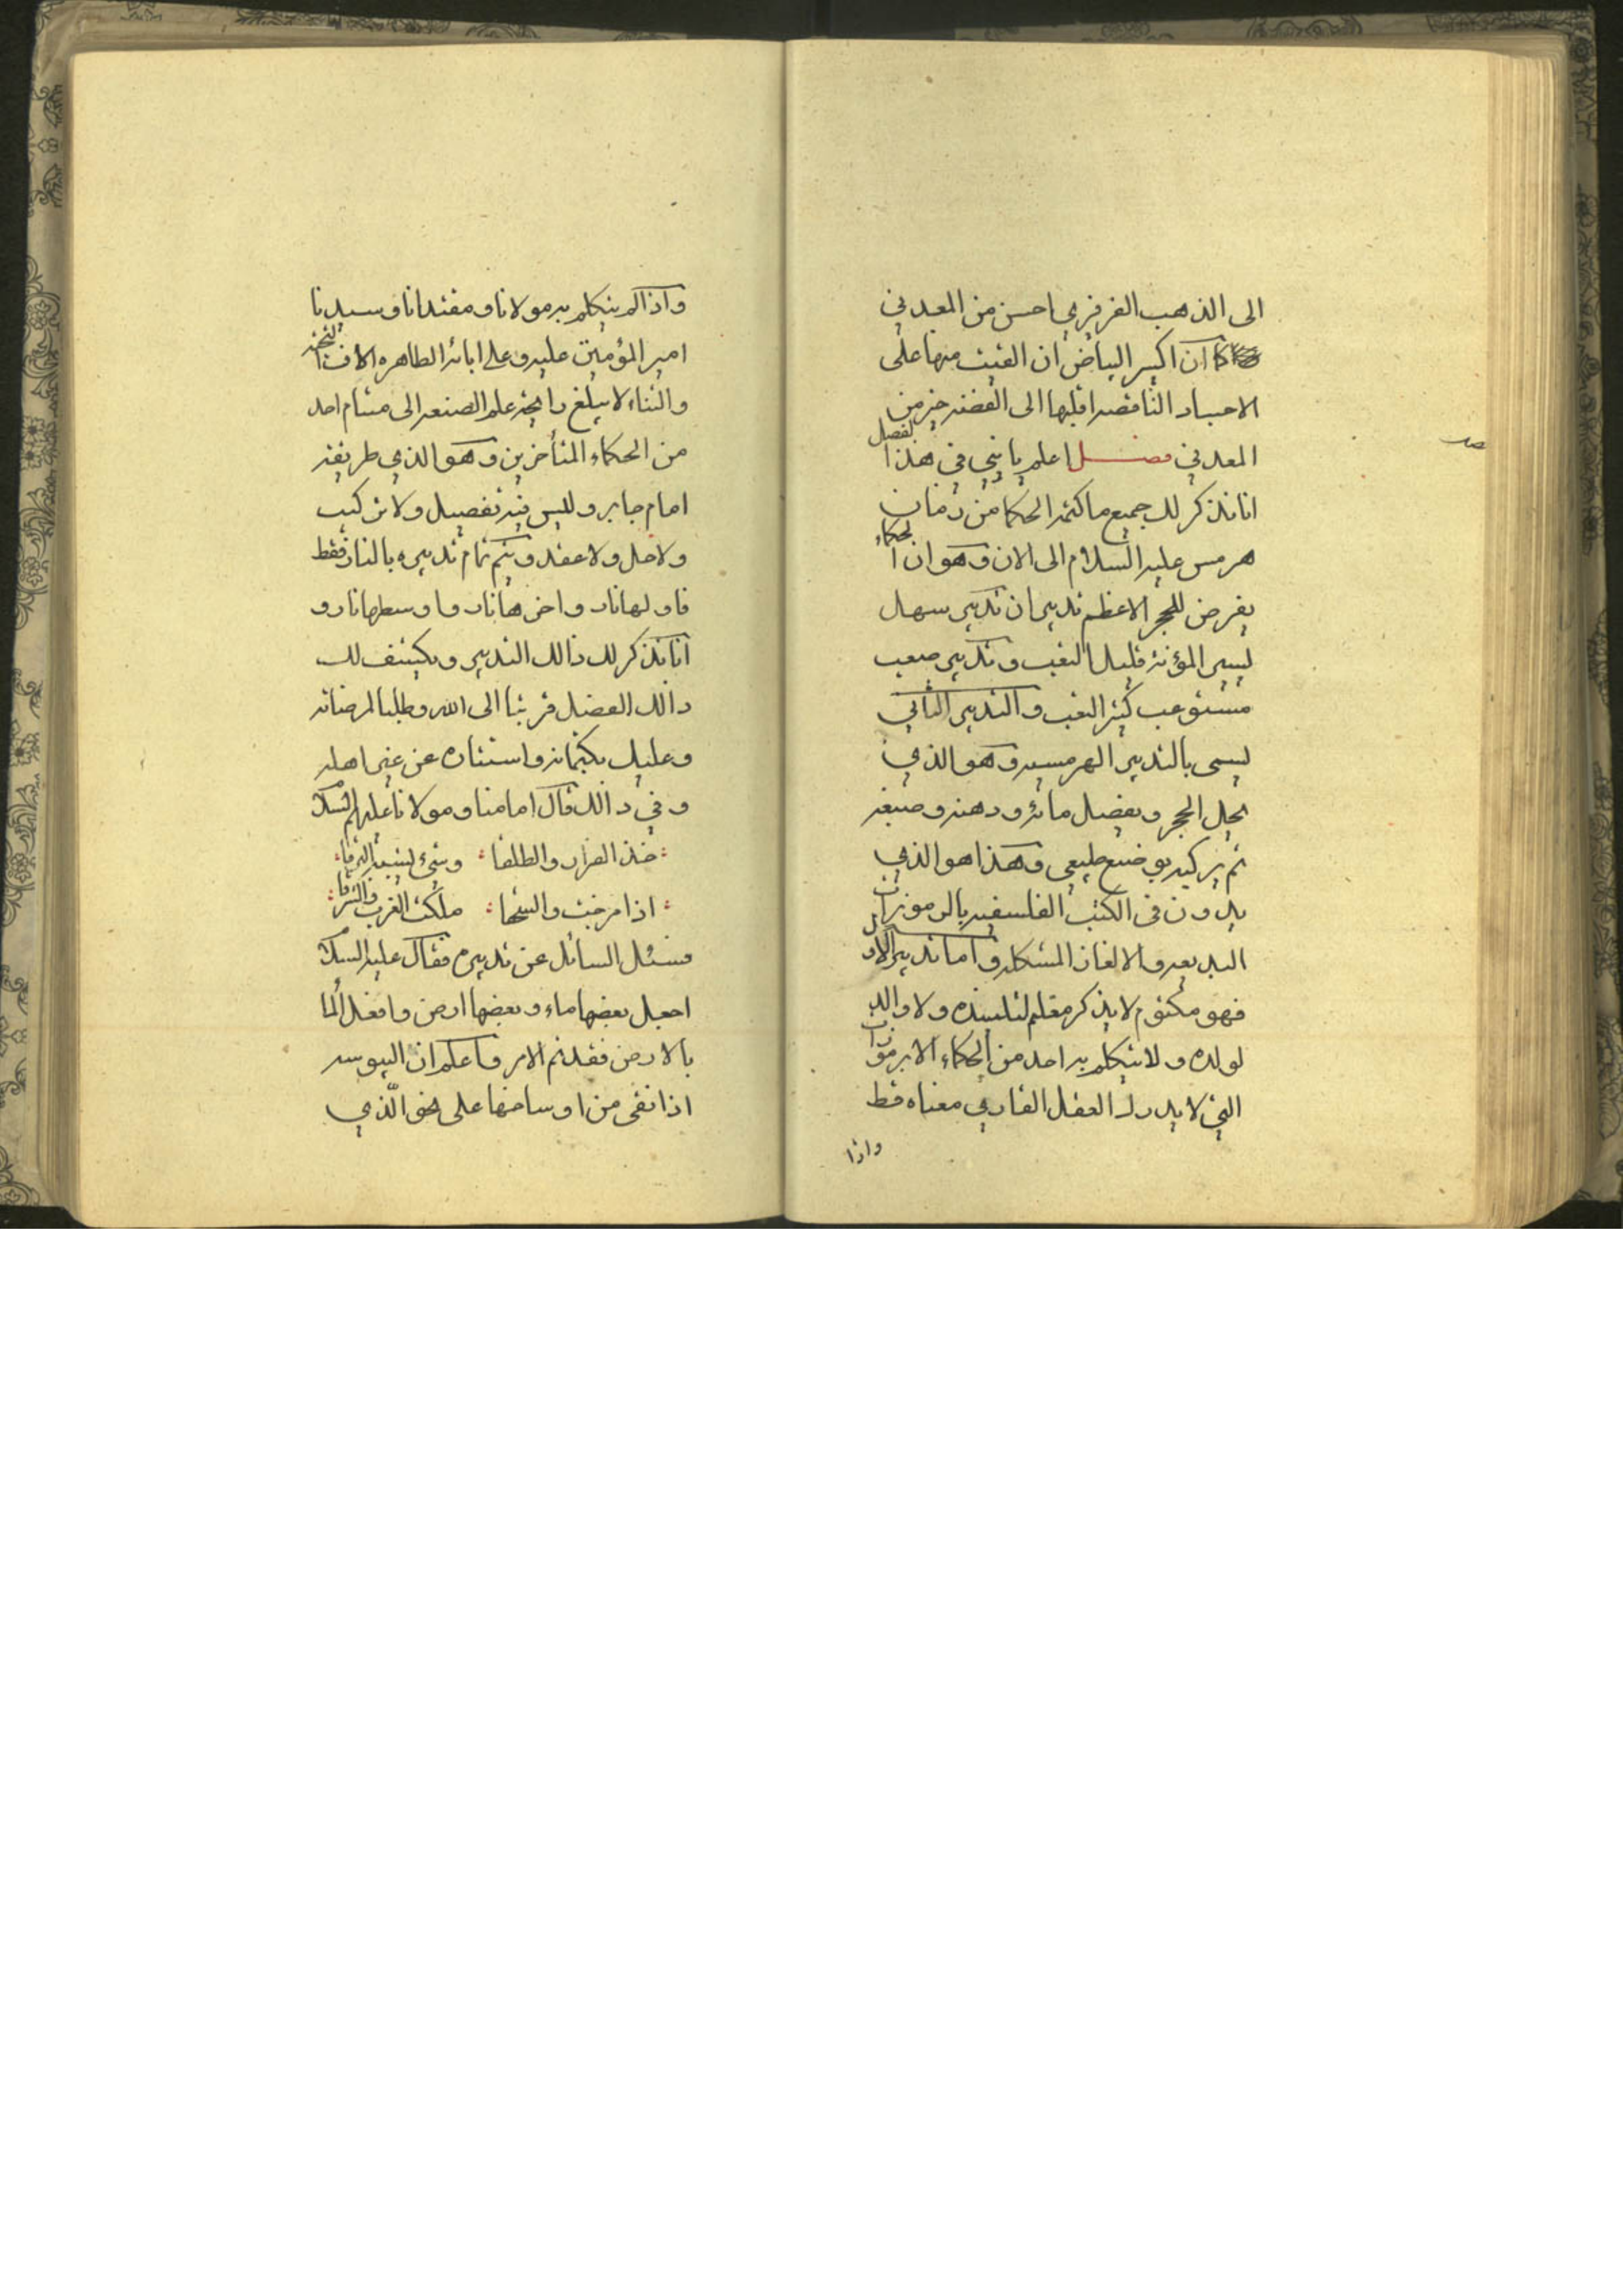 الى الذهب الفرفري احسن من المعدني
كما ان اكسير البياض ان القيت منها على
الاجساد الناقصه اقلبها الى الفضه خير من
المعدني فصل اعلم يا بني في هذا الفصل
انا نذكر لك جميع ما كتمه الحكما من زمان
هرمس عليه السلام الى الان وهو ان الحكماء
يفرض للحجر الاعظم تدبيران تدبير سهل
يسير المؤنة قليل التعب و تدبير صعب
مستوعب كثير التعب والتدبير الثاني
يسمى بالتدبير الهرمسيه وهو الذي
يحل الحجر ويفصل مائه ودهنه وصبغه
ثم يركبه بوضع طبيعي وهذا هو الذي
يدون في الكتب الفلسفيه بالرموزات
البديعه والالغاز المشكله واما تدبير الاول
فهو مكتوم لا يذكر معلم لتلميذه ولا والد
لولده ولا يتكلم به احد من الحكماء الا برموزات
التي لا يدرك العقل القاري معناه قط
واذا
واذا لم يتكلم به مولانا و مقتدانا و سيدنا
امير المؤمنين عليه و على ابائه الطاهره الاف التحيه
والثناء لا يبلغ رايحة علم الصنعه الى مشام احد
من الحكماء المتأخرين وهو الذي طريقه
امام جابر و لليس فيه تفصيل ولا تركيب
ولا حل ولا عقد و يتم تمام تدبيره بالنار فقط
فاولها نار و اخرها نار و اوسطها نار و
انا نذكر لك ذالك التدبير ويكشف لك
ذالك الفصل قربتا الى الله وطلبا لمرضاته
وعليك بكتمانه و استتاره عن غير اهله
و في ذالك قال امامنا و مولانا عليهم السلام
خذ الفرار والطلقا وشيء يشبه البرقا
اذا مزجت والسحقا ملكت الغرب والشرقا
فسئل السائل عن تدبيره فقال عليه السلام
اجعل بعضها ماء و بعضها ارض وافعل الما
بالارض فقد تم الامر و اعلم ان اليبوسه
اذا نقى من اوساخها على نحو الّذي